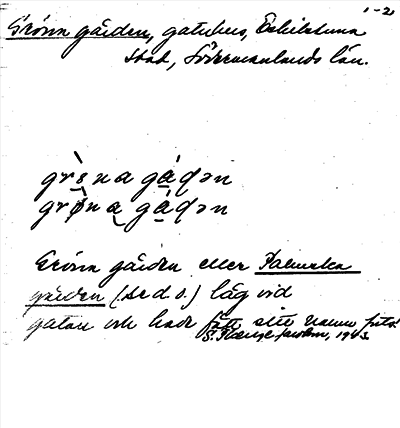 1-2
Gröna gården, gatuhus, Eskilstuna
stad, Södermanlands län.
grs̀na gáqən
grøna gáqən
Gröna gården eller Palmska
gården (se d.o.) låg vid
gatan och hade fått sitt namn
1943.